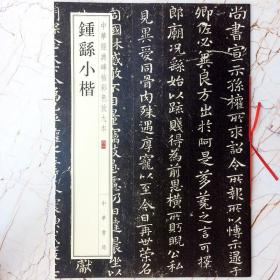 尚書宣示孫權所求詔令所報所以博示逮于
卿佐必冀良方出於阿是芻蕘之言可擇
郎廟況繇始以疏賤得為前恩橫所盱睨公私
見異愛同骨肉殊遇厚寵以至今日再世榮名
同國休慼敢不自量竊致愚慮仍日達晨坐
獻
中華經典碑帖彩色放大本
鍾繇小楷
中華書局